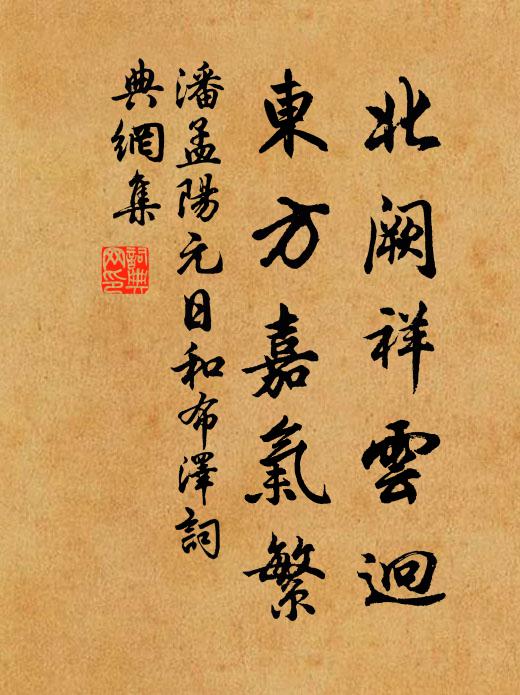 北阙祥雲迥
東方嘉氣繁
潘孟陽元日和布澤詞
典網集
詞典
网印